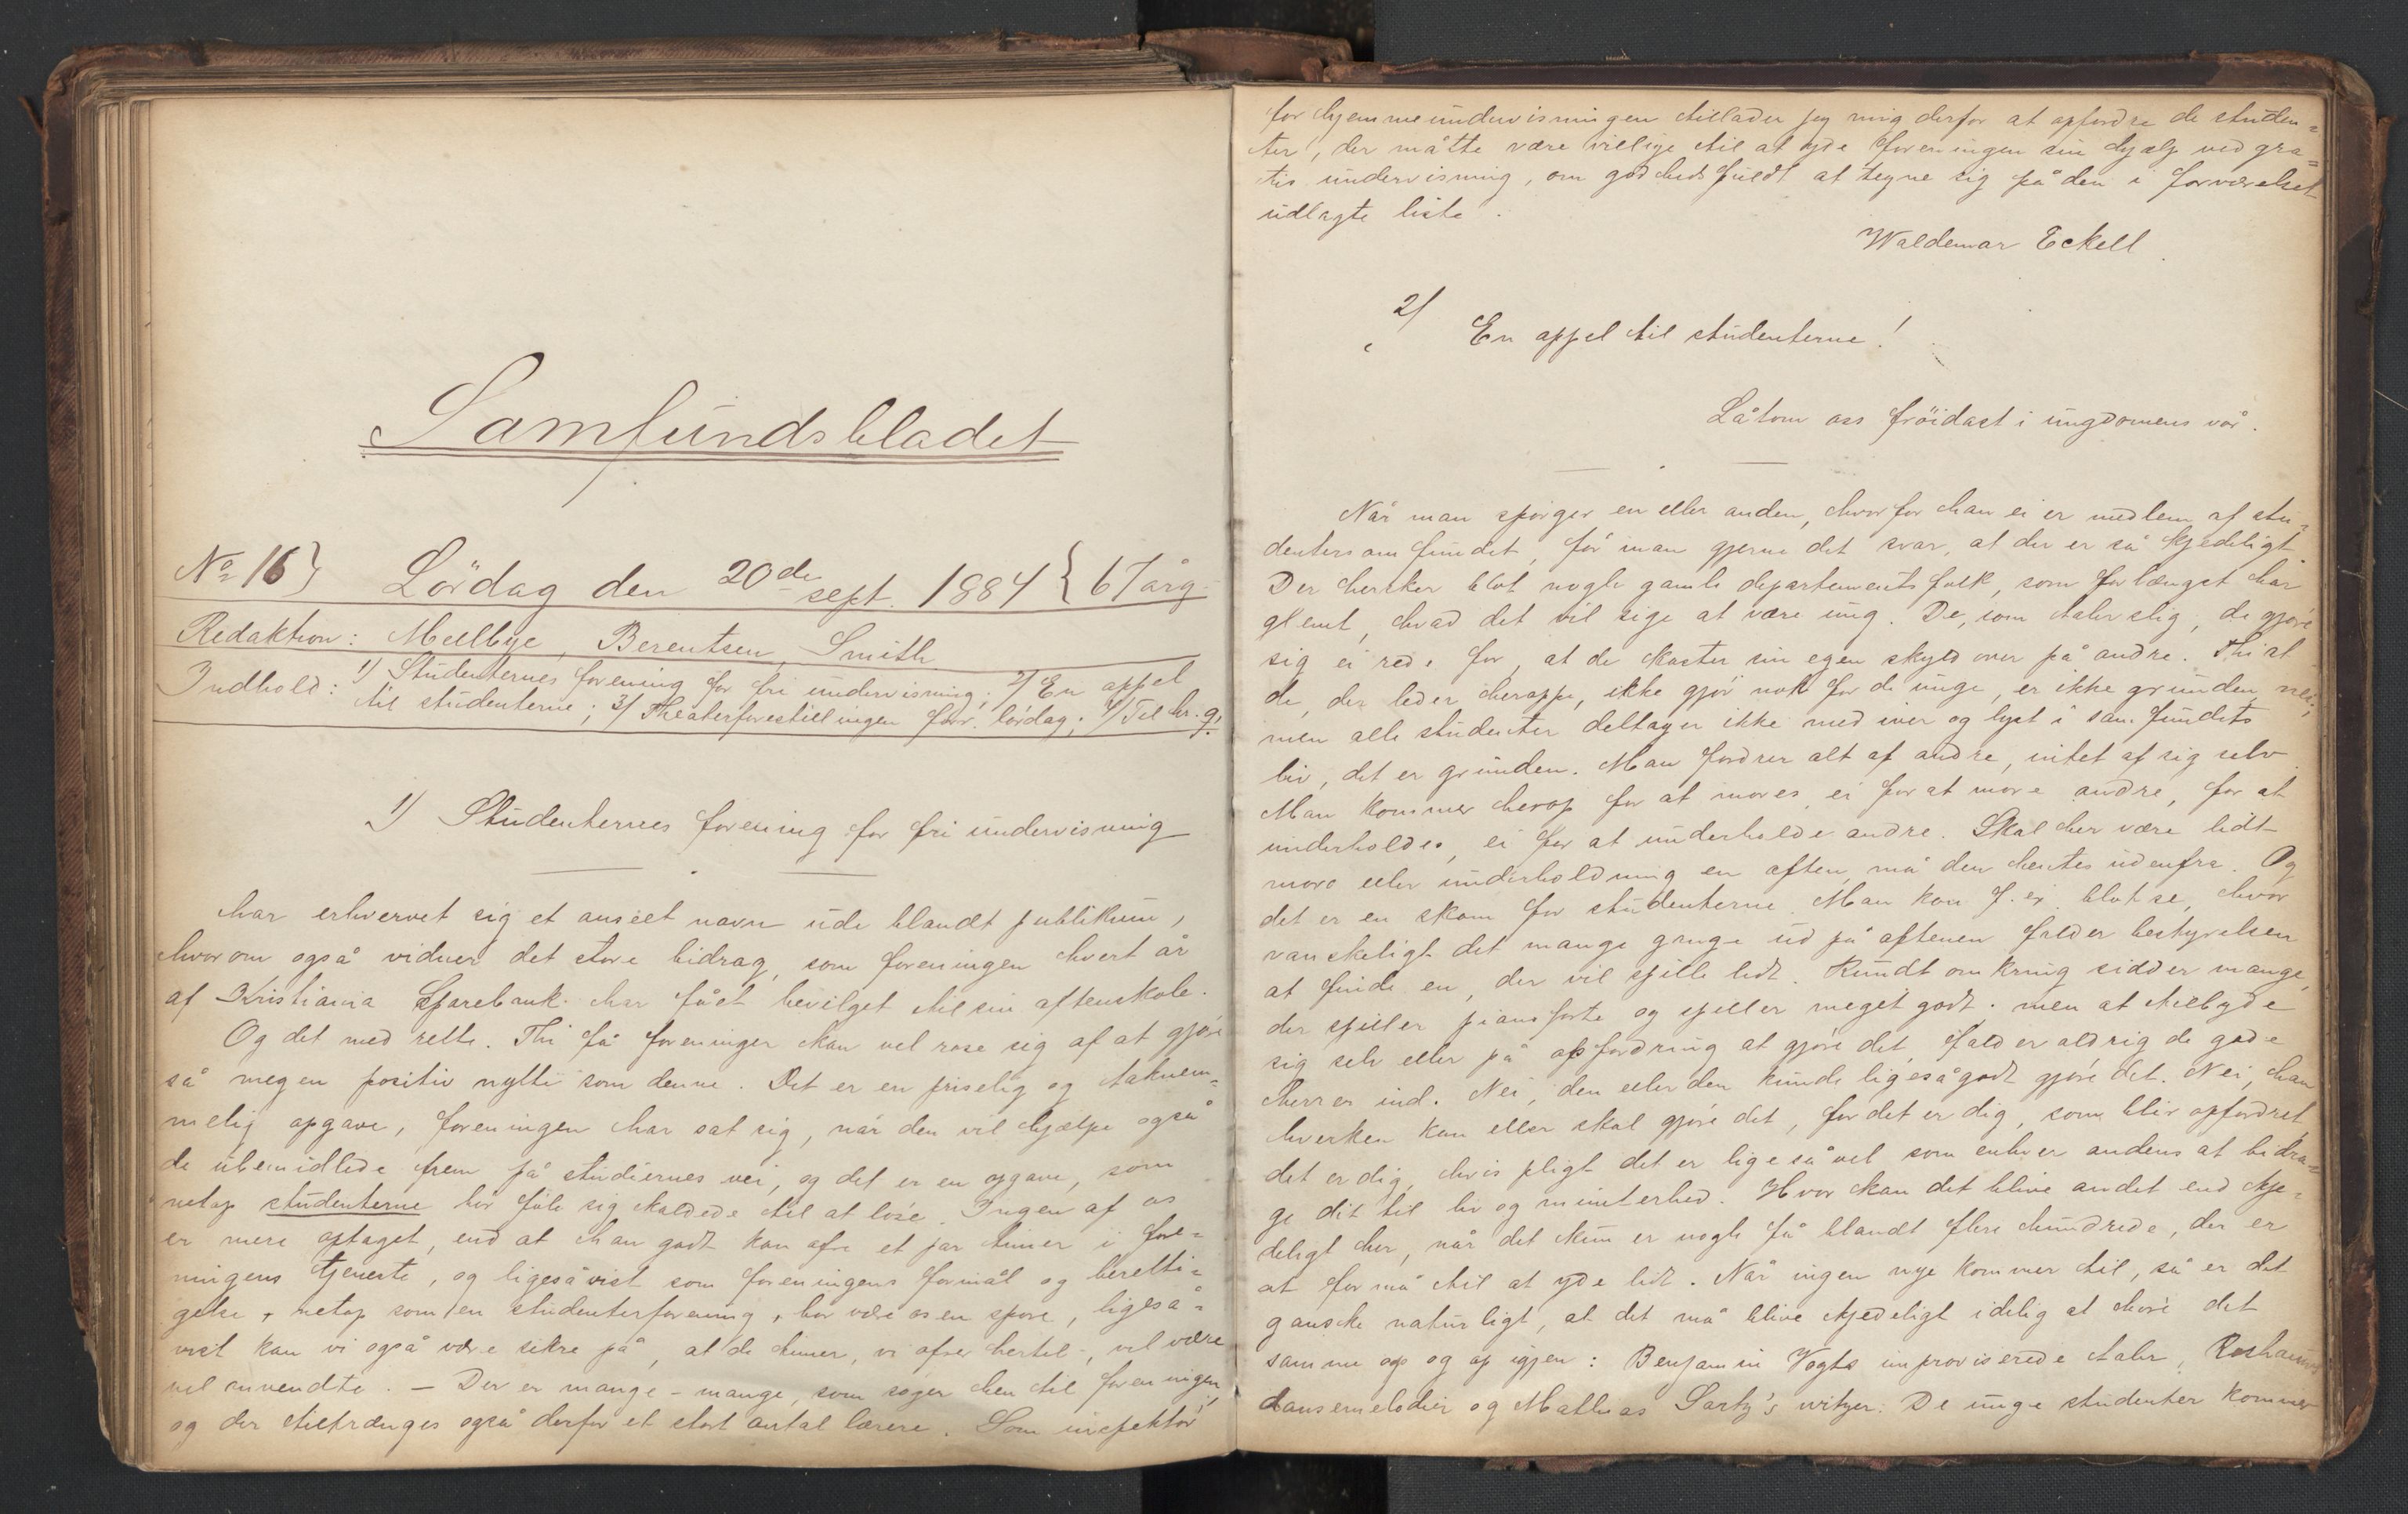 Samfundsbladet
No 16} Lördag den 20de sept. 1884 {67 årg.
Redaktion: Mellbye, Berentsen, Smith
Indhold: 1) Studenternes forening for fri undervisning; 2/ En appel
til studenterne; 3/ Theaterforestillingen forr. lördag; 4/ Til hr. g.
1) Studenternes forening for fri undervisning
har erhvervet sig et anseet navn ude blandt publikum,
hvorom også vidner det store bidrag, som foreningen hvert år
af Kristiania Sparebank har fået bevilget til sin aftenskole.
Og det med rette. Thi få foreninger kan vel rose sig af at gjöre
så megen positiv nytte som denne. Det er en priselig og taknem=
melig opgave, foreningen har sat sig, når den vil hjælpe også
de ubemidlede frem på studiernes vei, og det er en opgave, som
netop studenterne bör föle sig kaldede til at löse. Ingen af os
er mere optaget, end at han godt kan ofre et par timer i fore=
ningens tjeneste, og ligeså vist som foreningens formål og beretti=
gelse, netop som en studenterforening, bör være os en spore, ligeså=
vist kan vi også være sikre på, at de timer, vi ofrer hertil, vil være
vel anvendte. – Der er mange – mange, som söger hen til foreningen,
og der tiltrænges også derfor et stort antal lærere. Som inspektör
for hjemmeundervisningen tillader jeg mig derfor at opfordre de studen=
ter, der måtte være villige til at yde foreningen sin hjælp ved gra=
tis undervisning, om godhedsfuldt at tegne sig på den i forværelset
udlagte liste.
Waldemar Eckell
2/
En appel til studenterne!
Låtom oss fröidast i ungdomens vår.
Når man spörger en eller anden, hvorfor han ei er medlem af stu=
dentersamfundet, får man gjerne det svar, at der er så kjedeligt.
Der hersker blot nogle gamle departementsfolk, som forlængst har
glemt, hvad det vil sige at være ung. De, som taler slig, de gjöre
sig ei rede for, at de kaster sin egen skyld over på andre. Thi at
de, der leder heroppe, ikke gjör nok for de unge, er ikke grunden, nei,
men alle studenter deltager ikke med iver og lyst i samfundets
liv, det er grunden. Man fordrer alt af andre, intet af sig selv.
Man kommer herop for at mores, ei for at more andre, for at
underholdes, ei for at underholde andre. Skal her være lidt
moro eller underholdning en aften, må den hentes udenfra. Og
det er en skam for studenterne. Man kan f. ex. blot se, hvor
vanskeligt det mange gange ud på aftenen falder bestyrelsen
at finde en, der vil spille lidt. Rundt omkring sidder mange,
der spiller pianoforte og spiller meget godt; men at tilbyde
sig selv eller på opfordring at gjöre det, falder aldrig de gode
herrer ind. Nei, den eller den kunde ligesågodt gjöre det. Nei, han
hverken kan eller skal gjöre det, for det er dig, som blir opfordret,
det er dig, hvis pligt det er ligeså vel som enhver andens at bidra=
ge dit til liv og munterhed. Hvor kan det blive andet end kje=
deligt her, når det kun er nogle få blandt flere hundrede, der er
at formå til at yde lidt. Når ingen nye kommer til, så er det
ganske naturligt, at det må blive kjedeligt idelig at höre det
samme op og op igjen: Benjamin Vogts improviserede taler,
dansemelodier og Mathias Skartz's vitzer. De unge studenter kommer